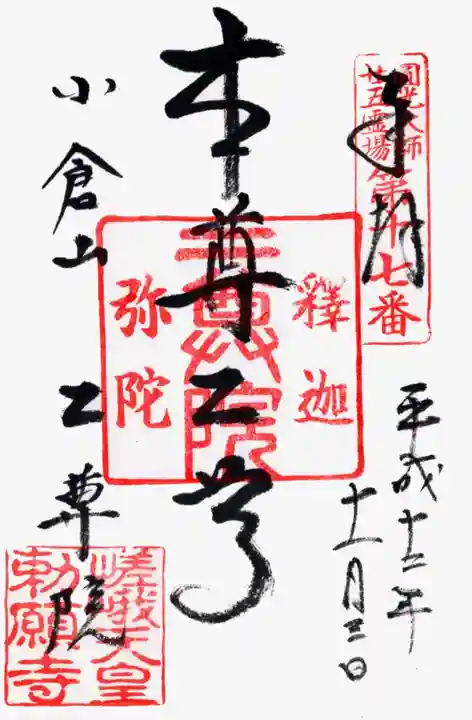 奉拝
圓光大師
廿五霊場第十七番
平成十二年
十一月三日
本尊二尊
釋迦
二尊院
弥陀
小倉山 二尊院
嵯峨天皇
勅願寺